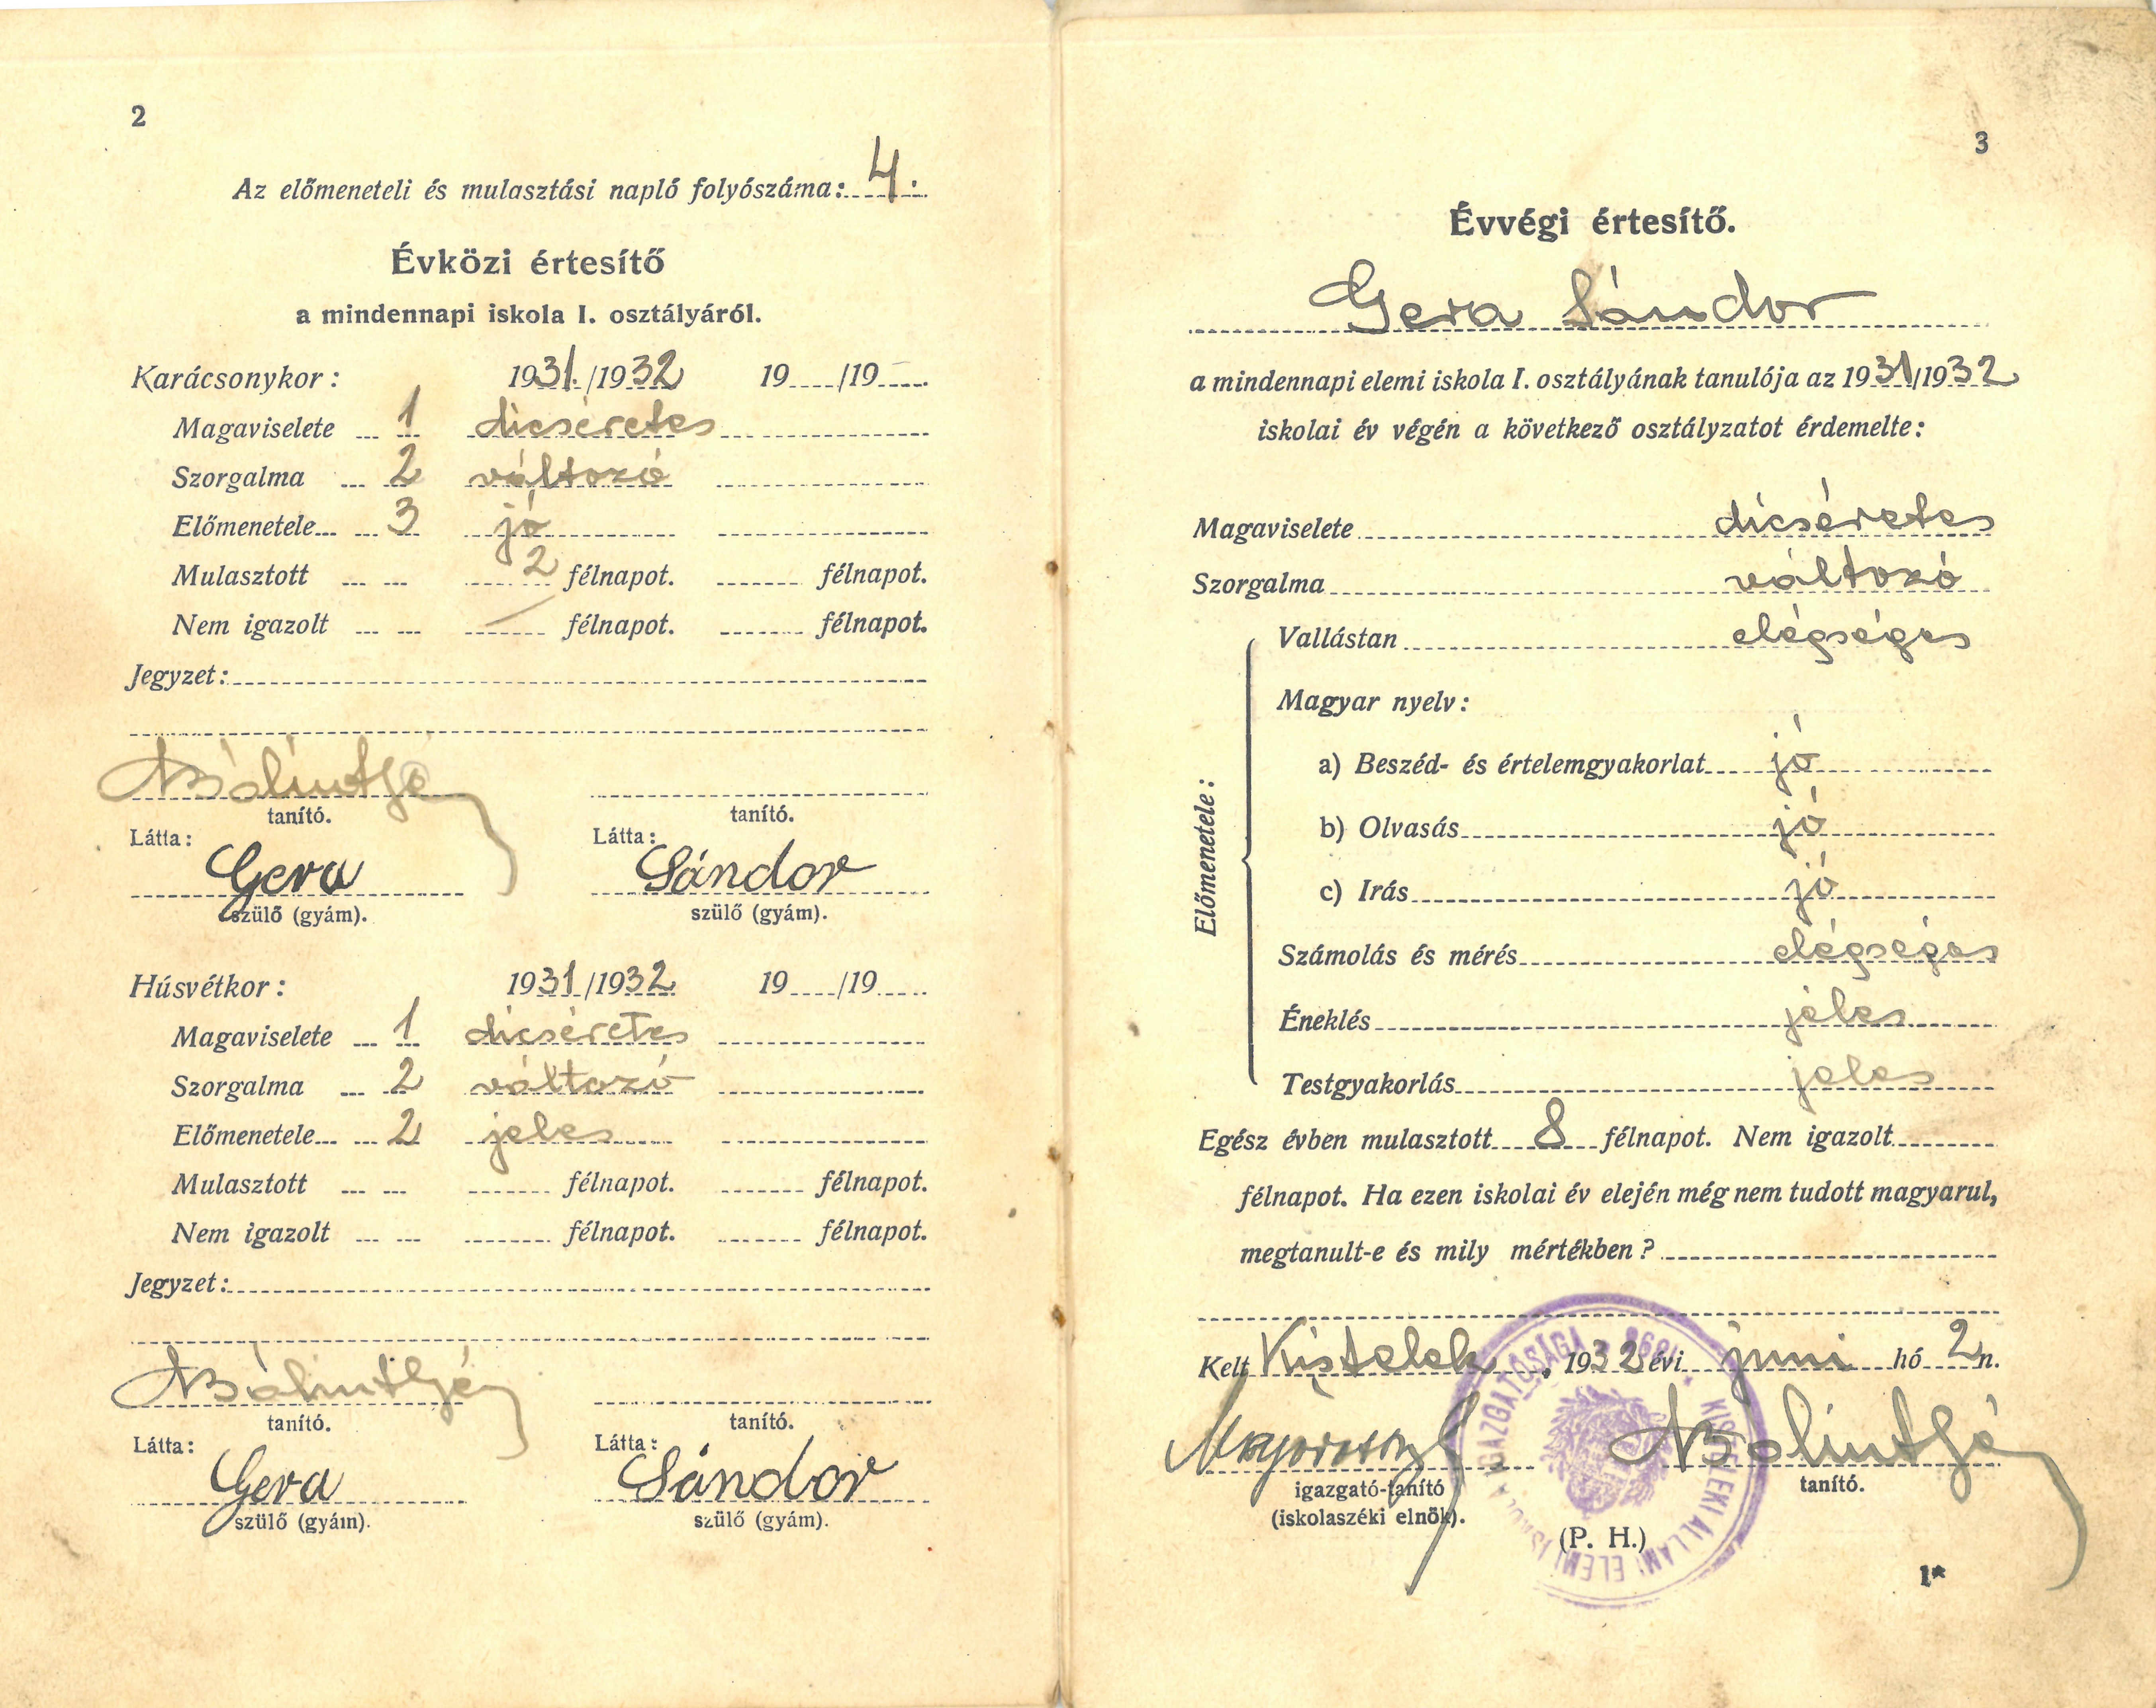 2
Az előmeneteli és mulasztási napló folyószáma: 4.
Évközi értesítő
a mindennapi iskola I. osztályáról.
Karácsonykor: 1931./1932 19..../19....
Magaviselete 1 dicséretes
Szorgalma 2 változó
Előmenetele 3 jó
Mulasztott 2 félnapot. félnapot.
Nem igazolt — félnapot. félnapot.
Jegyzet:
tanító. tanító.
Látta: Látta:
Gera Sándor
szülő (gyám). szülő (gyám).
Húsvétkor: 1931/1932 19..../19....
Magaviselete 1 dicséretes
Szorgalma 2 változó
Előmenetele 2 jeles
Mulasztott félnapot. félnapot.
Nem igazolt félnapot. félnapot.
Jegyzet:
tanító. tanító.
Látta: Látta:
Gera Sándor
szülő (gyám). szülő (gyám).
3
Évvégi értesítő.
Gera Sándor
a mindennapi elemi iskola I. osztályának tanulója az 1931/1932
iskolai év végén a következő osztályzatot érdemelte:
Magaviselete dicséretes
Szorgalma változó
Előmenetele:
Vallástan elégséges
Magyar nyelv:
a) Beszéd- és értelemgyakorlat jó
b) Olvasás jó
c) Irás jó
Számolás és mérés elégséges
Éneklés jeles
Testgyakorlás jeles
Egész évben mulasztott 8 félnapot. Nem igazolt
félnapot. Ha ezen iskolai év elején még nem tudott magyarul,
megtanult-e és mily mértékben?
Kelt Kistelek, 1932 évi juni hó 2 n.
igazgató-tanító tanító.
(iskolaszéki elnök).
(P. H.)
KISTELEKI ÁLLAMI ELEMI ISKOLA IGAZGATÓSÁGA
1*